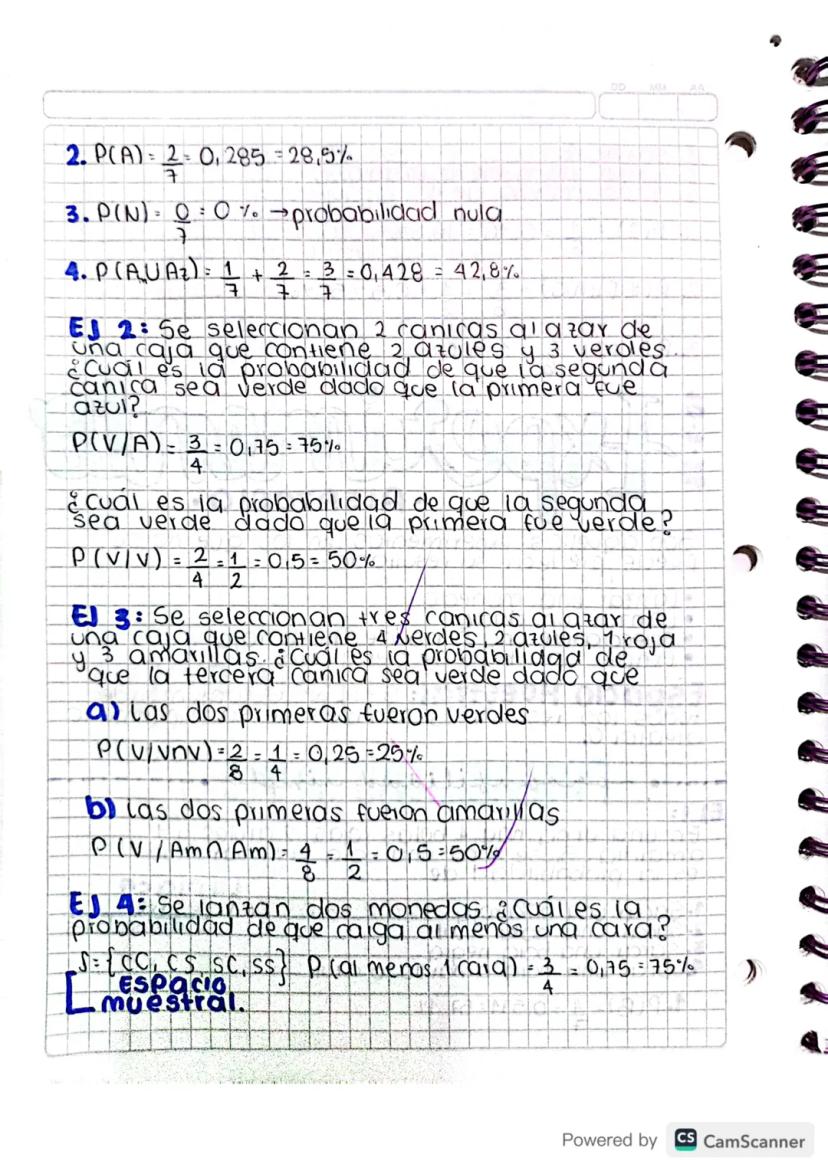 DD MM AA
2. P(A) = 2/7 = 0,285 = 28,5%
3. P(N) = 0/7 = 0 % → probabilidad nula
4. P(A∪Az) = 1/7 + 2/7 = 3/7 = 0,428 = 42,8%
EJ 2: Se seleccionan 2 canicas al azar de
una caja que contiene 2 azules y 3 verdes.
¿Cuál es la probabilidad de que la segunda
canica sea verde dado que la primera fue
azul?
P(V/A) = 3/4 = 0,75 = 75%
¿Cuál es la probabilidad de que la segunda
sea verde dado que la primera fue verde?
P(V/V) = 2/4 = 1/2 = 0,5 = 50%
EJ 3: Se seleccionan tres canicas al azar de
una caja que contiene 4 verdes, 2 azules, 1 roja
y 3 amarillas. ¿Cuál es la probabilidad de
que la tercera canica sea verde dado que
a) las dos primeras fueron verdes
P(V/V∩V) = 2/8 = 1/4 = 0,25 = 25%
b) las dos primeras fueron amarillas
P(V/Am∩Am) = 4/8 = 1/2 = 0,5 = 50%
EJ 4: Se lanzan dos monedas ¿Cuál es la
probabilidad de que caiga al menos una cara?
S = {CC, CS, SC, SS} P(al menos 1 cara) = 3/4 = 0,75 = 75%
Espacio
muestral.
Powered by CS CamScanner